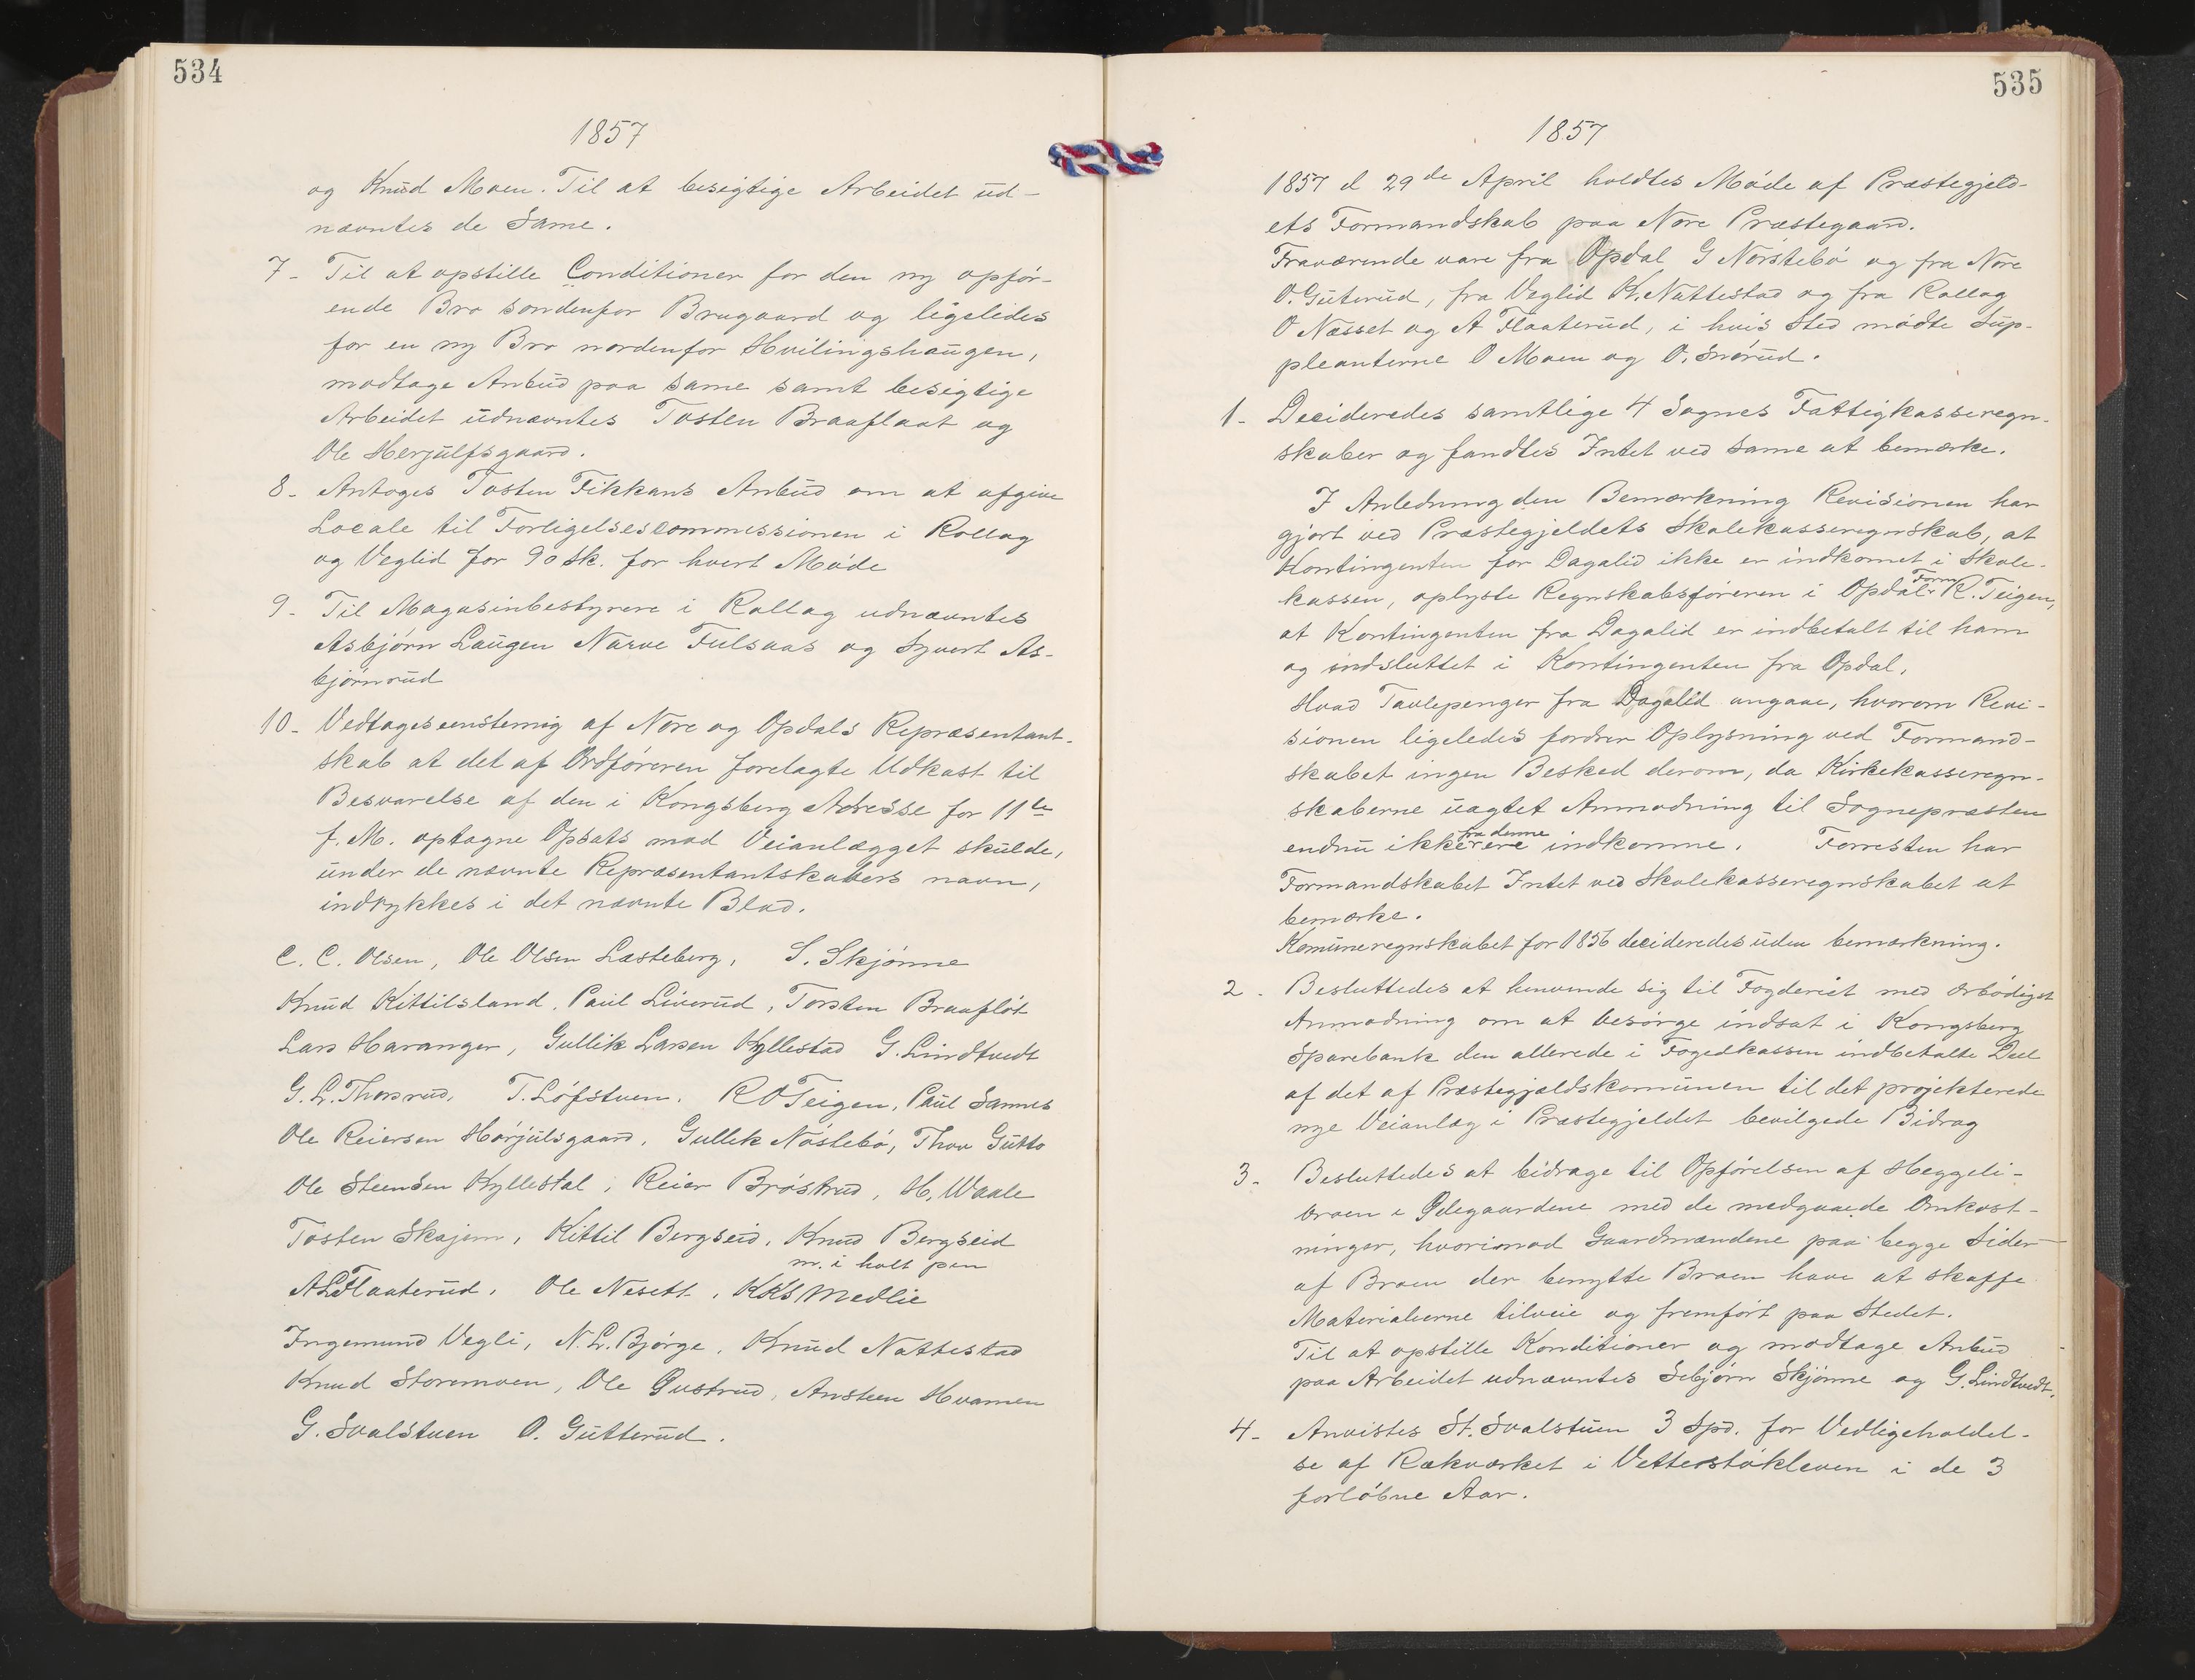 534
1857
og Knud Moen. Til at besigtige Arbeidet ud-
nævntes de Same.
7- Til at opstille Conditioner for den ny opfør-
ende Bro søndenfor Brugaard og ligeledes
for en ny Bro nordenfor Hvilingshaugen,
modtage Anbud paa same samt besigtige
Arbeidet udnævntes Tosten Braaflaat og
Ole Herjulfsgaard.
8- Antoges Tosten Fikkans Anbud om at afgive
Locale til Forligelsescommissionen i Rollag
og Veglid for 90 sk. for hvert Møde
9- Til Magasinbestyrere i Rollag udnævntes
Asbjørn Laugen Narve Fulsaas og Syvert As-
bjørnrud
10- Vedtoges eenstemig af Nore og Opdals Repræsentant-
skab at det af Ordføreren forelagte Udkast til
Besvarelse af den i Kongsberg Adresse for 11te
f. M. optagne Opsats mod Veianlægget skulde,
under de nævnte Repræsentantskabers navn,
indrykkes i det nævnte Blad.
C. C. Olsen, Ole Olsen Læsteberg, S. Skjønne
Knud Kittilsland, Paul Liverud, Torsten Braafløt
Lars Haranger, Gullik Larsen Kyllestad G. Lindtvedt
G. L. Thorsrud, T. Løfstuen. R O Teigen, Paul Sannes
Ole Reiersen Hørjulsgaard, Gullek Nøstebø, Thov Gutto
Ole Steensen Kyllestal, Reier Brøstrud, H. Waale
Tosten Skajem, Kittil Bergseid, Knud Bergseid
m. i holt pen
A L Flaaterud, Ole Nesett, KKS Medlie
Ingemund Vegli, N. L. Bjørge, Knud Nattestad
Knud Storemoen, Ole Gustrud, Ansteen Hvamen
G. Svalstuen O. Gutterud.
535
1857
1857 d 29de April holdtes Møde af Præstegjeld-
ets Formandskab paa Nore Præstegaard.
Fraværende vare fra Opdal G Nørstebø og fra Nore
O. Guterud, fra Veglid K. Nattestad og fra Rollag
O Næsset og A Flaaterud, i hvis Sted mødte Sup-
pleanterne O Moen og O. Snørud.
1- Decideredes samtlige 4 Sognes Fattigkasseregn-
skaber og fandtes Intet ved same at bemærke.
I Anledning den Bemærkning Revisionen har
gjort ved Præstegjeldets Skolekasseregnskab, at
Kontingenten for Dagalid ikke er indkomet i Skole-
kassen, oplyste Regnskabsføreren i Opdal Form R. Teigen,
at Kontingenten fra Dagalid er indbetalt til ham
og indsluttet i Kontingenten fra Opdal.
Hvad Tavlepenger fra Dagalid angaae, hvorom Revi-
sionen ligeledes fordrer Oplysning ved Formand-
skabet ingen Besked derom, da Kirkekasseregn-
skaberne uagtet Anmodning til Sognepræsten
endnu ikke fra denne ere indkomne. Forresten har
Formandskabet Intet ved Skolekasseregnskabet at
bemærke.
Komuneregnskabet for 1856 decideredes uden bemærkning.
2- Besluttedes at henvende sig til Fogderiet med ærbødigst
Anmodning om at besørge indsat i Kongsberg
Sparebank den allerede i Fogedkassen indbetalte Deel
af det af Præstegjældskomunen til det projekterede
nye Veianlæg i Præstegjeldet bevilgede Bidrag
3- Besluttedes at bidrage til Opførelsen af Heggeli-
broen i Ødegaardene med de medgaaede Omkost-
ninger, hvorimod Gaardmændene paa begge Sider
af Broen der benytte Broen have at skaffe
Materialierne tilveie og fremført paa Stedet.
Til at opstille Konditioner og modtage Anbud
paa Arbeidet udnævntes Sebjørn Skjønne og G. Lindtvedt.
4- Anvistes St. Svalstuen 3 Spd. for Vedligeholdel-
se af Rækværket i Vetterstøkleven i de 3
forløbne Aar.